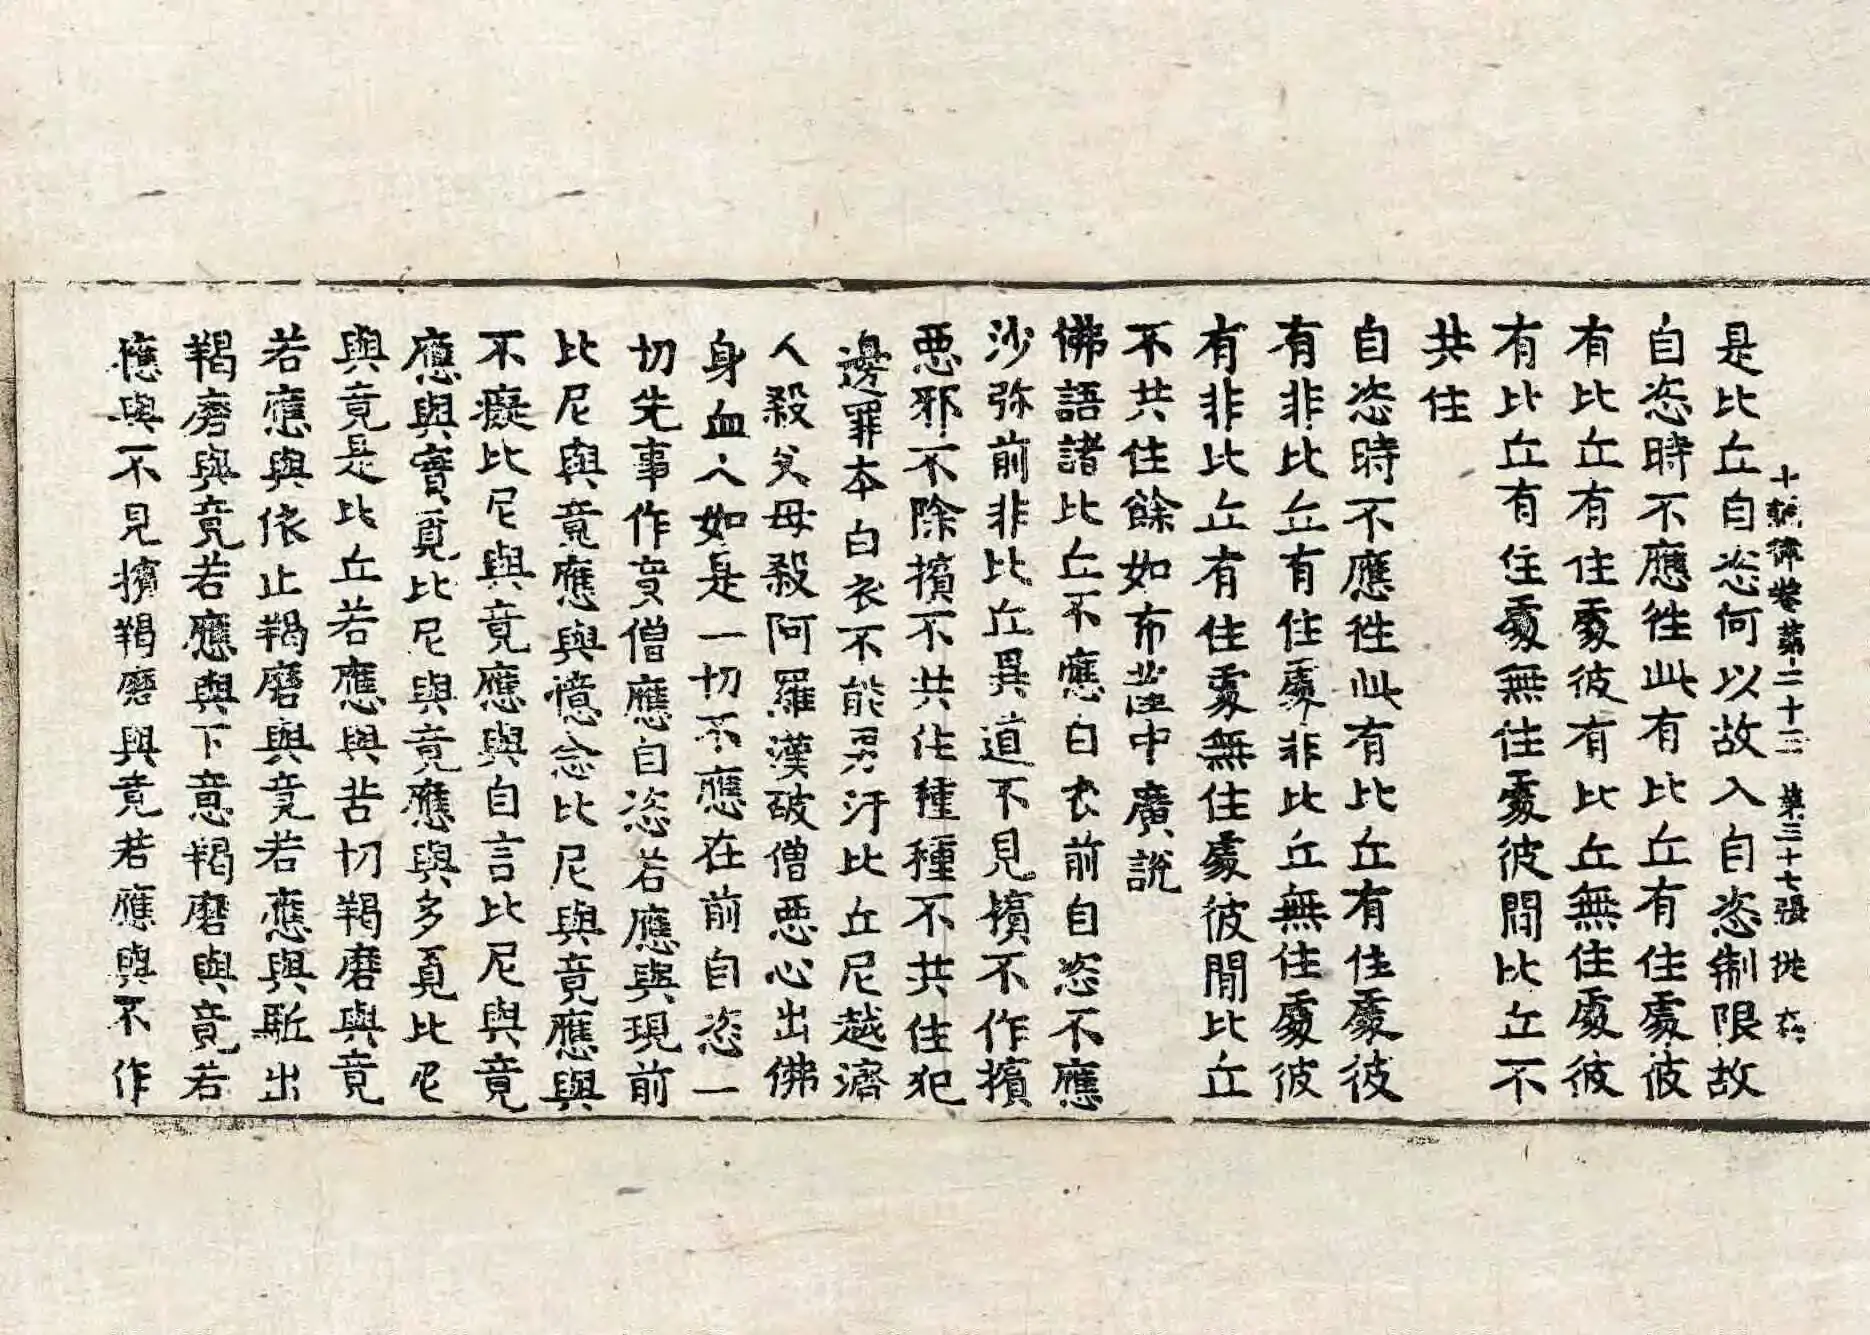 十誦律卷第二十三 第三十七張 投
是比丘自恣何以故入自恣制限故
自恣時不應徃此有比丘有住處彼
有比丘有住處彼有比丘無住處彼
有比丘有住處無住處彼間比丘不
共住
自恣時不應徃此有比丘有住處彼
有非比丘有住處非比丘無住處彼
有非比丘有住處無住處彼間比丘
不共住餘如布薩中廣說
佛語諸比丘不應白衣前自恣不應
沙弥前非比丘異道不見擯不作擯
惡邪不除擯不共住種種不共住犯
邊罪本白衣不能男汙比丘尼越濟
人殺父母殺阿羅漢破僧惡心出佛
身血人如是一切不應在前自恣一
切先事作竟僧應自恣若應與現前
比尼與竟應與憶念比尼與竟應與
不癡比尼與竟應與自言比尼與竟
應與實覓比尼與竟應與多覓比尼
與竟是比丘若應與苦切羯磨與竟
若應與依止羯磨與竟若應與駈出
羯磨與竟若應與下意羯磨與竟若
應與不見擯羯磨與竟若應與不作